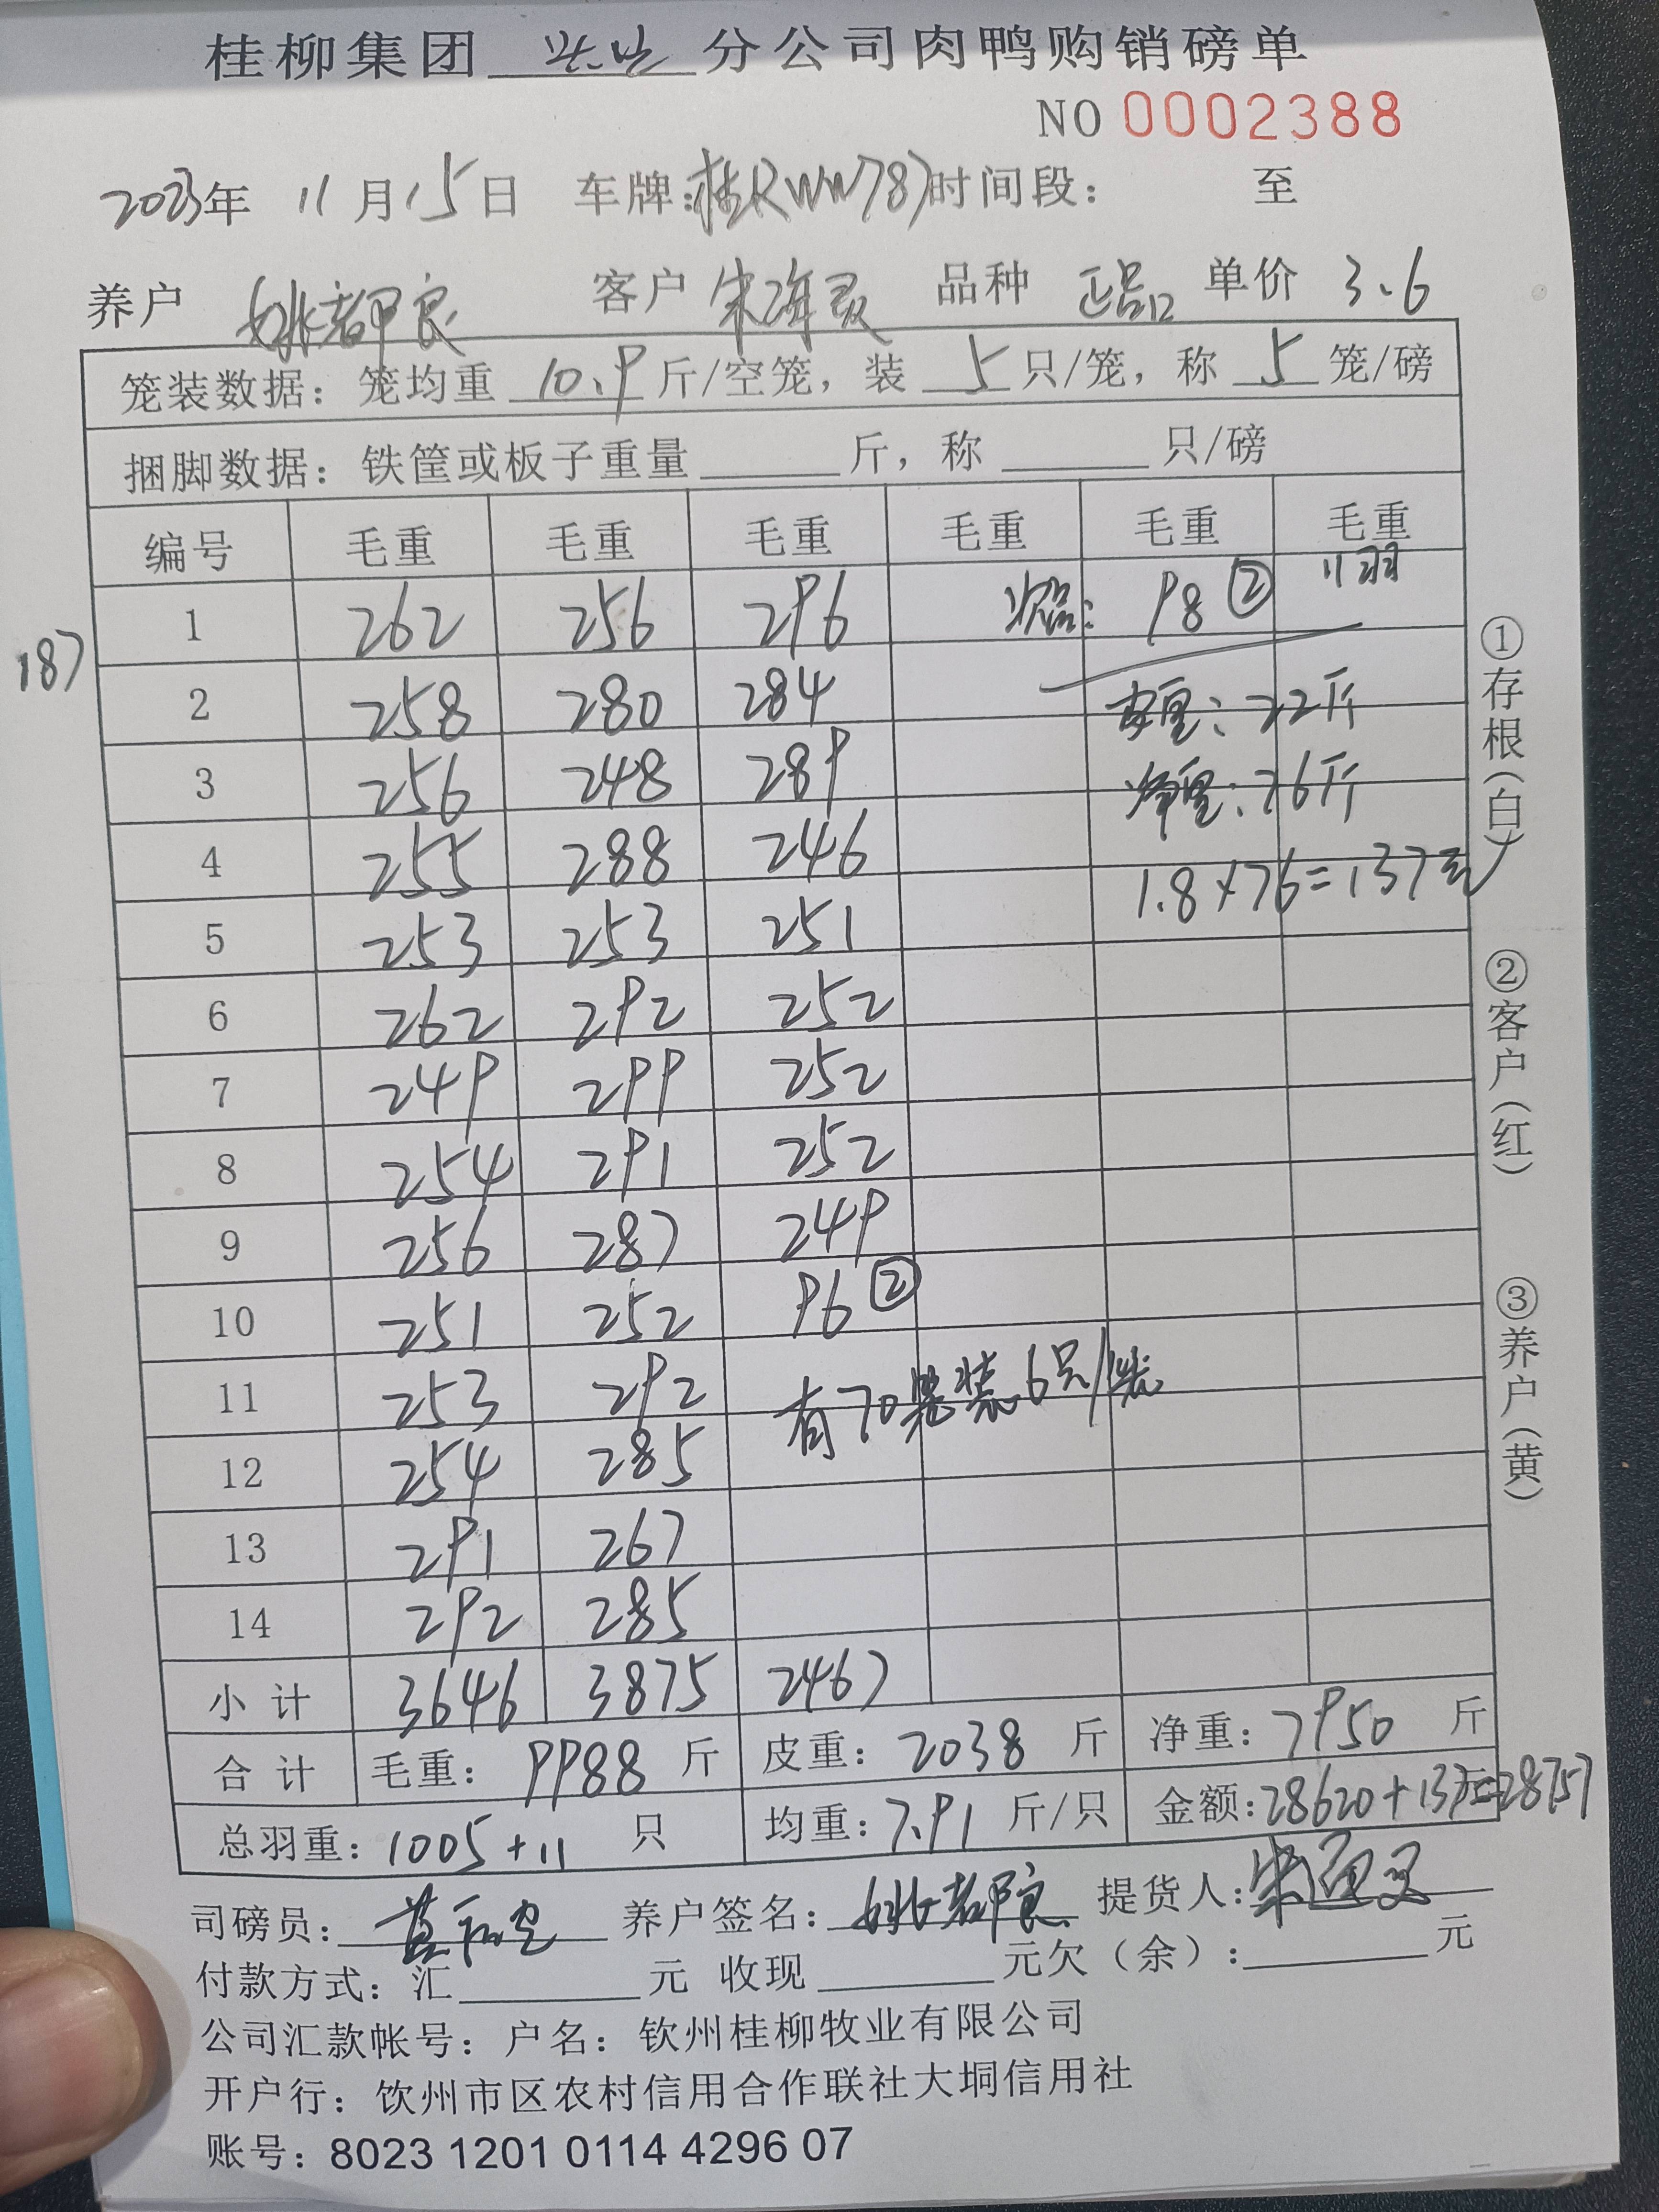 桂柳集团 分公司肉鸭购销磅单
NO 0002388
2023年 11月15日 车牌:桂RWW787 时间段: 至
养户 姚都良 客户 宋海灵 品种 正品 单价 3.6
笼装数据: 笼均重 10.9 斤/空笼, 装 5 只/笼, 称 5 笼/磅
捆脚数据: 铁筐或板子重量 斤, 称 只/磅
编号 毛重 毛重 毛重 毛重 毛重 毛重
1 262 256 296 次品: 98② 11羽
187
2 258 280 284 皮重: 22斤
3 256 248 289 净重: 76斤
4 255 288 246 1.8×76=137元
5 253 253 251
6 262 292 252
7 249 299 252
8 254 291 252
9 256 287 249
10 251 252 96②
11 253 292 有70笼装6只/笼
12 254 285
13 291 267
14 292 285
小计 3646 3875 2467
合计 毛重: 9988 斤 皮重: 2038 斤 净重: 7950 斤
总羽重: 1005+11 只 均重: 7.91 斤/只 金额: 28620+137=28757
司磅员: 养户签名: 姚都良 提货人:
付款方式: 汇 元 收现 元欠(余): 元
公司汇款帐号: 户名: 钦州桂柳牧业有限公司
开户行: 钦州市区农村信用合作联社大垌信用社
账号: 8023 1201 0114 4296 07
①存根(白)
②客户(红)
③养户(黄)